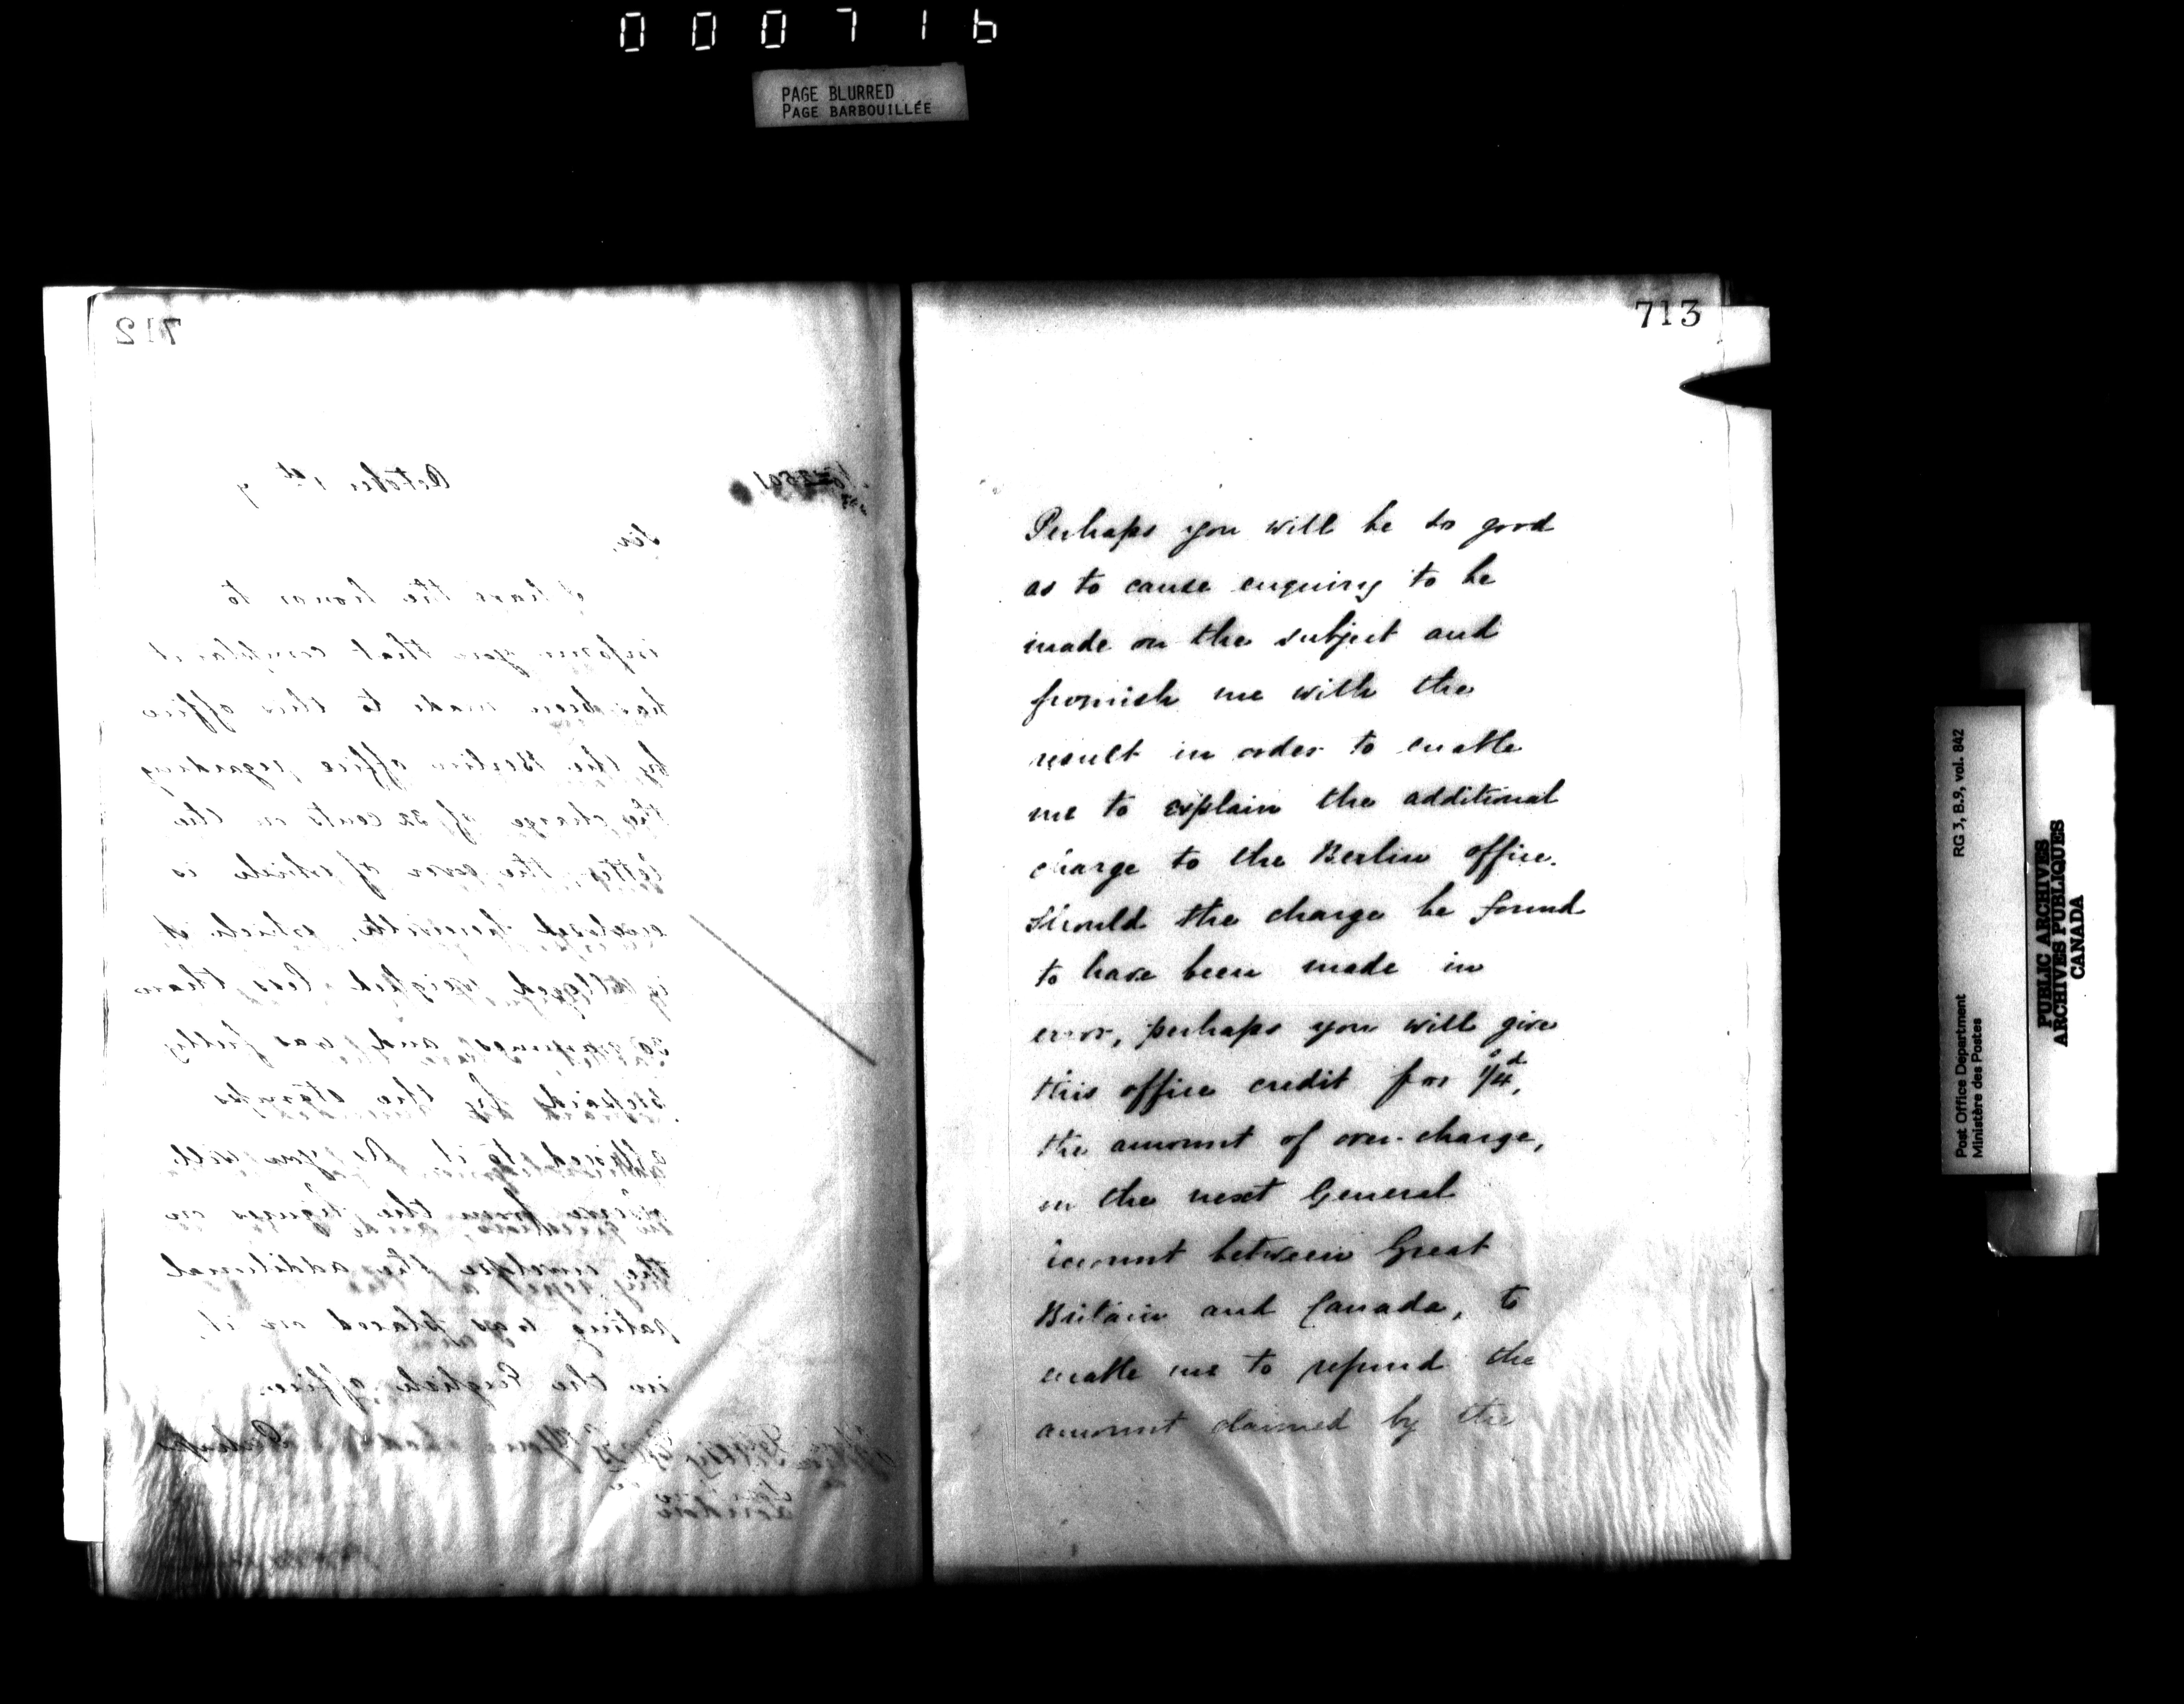 000716
PAGE BLURRED
PAGE BARBOUILLÉE
712
October 1st 7
Sir,
I have the honor to
inform you that complaint
has been made to this office
by the Berlin office regarding
the charge of 32 cents on the
letter, the cover of which is
enclosed herewith, which it
is alleged weighed less than
grammes and was fully
prepaid by the stamps
affixed to it. As you will
from the figures on
the envelope the additional
rating was placed on it,
in the English office.
Perhaps
London
713
Perhaps you will be so good
as to cause enquiry to be
made on the subject and
furnish me with the
result in order to enable
me to explain the additional
charge to the Berlin office.
Should the charge be found
to have been made in
error, perhaps you will give
this office credit for 1s/4d,
the amount of over-charge,
in the next General
account between Great
Britain and Canada, to
enable me to refund the
amount claimed by the
Post Office Department
Ministère des Postes
RG 3, B.9, vol. 842
PUBLIC ARCHIVES
ARCHIVES PUBLIQUES
CANADA